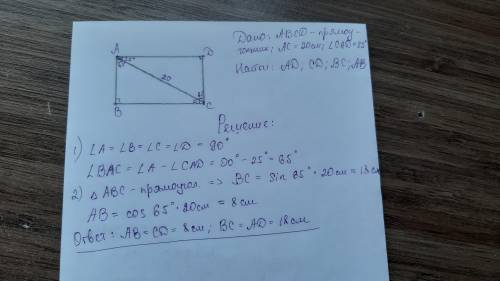 Дано: ABCD - прямоу-
гольник; AC = 20см; ∠CAD = 25°
Найти: AD, CD, BC, AB
A
D
25°
20
B
C
Решение:
1) ∠A = ∠B = ∠C = ∠D = 90°
∠BAC = ∠A - ∠CAD = 90° - 25° = 65°
2) △ABC - прямоугол. => BC = sin 65° · 20см = 18см
AB = cos 65° · 20см = 8см
Ответ: AB = CD = 8см; BC = AD = 18см